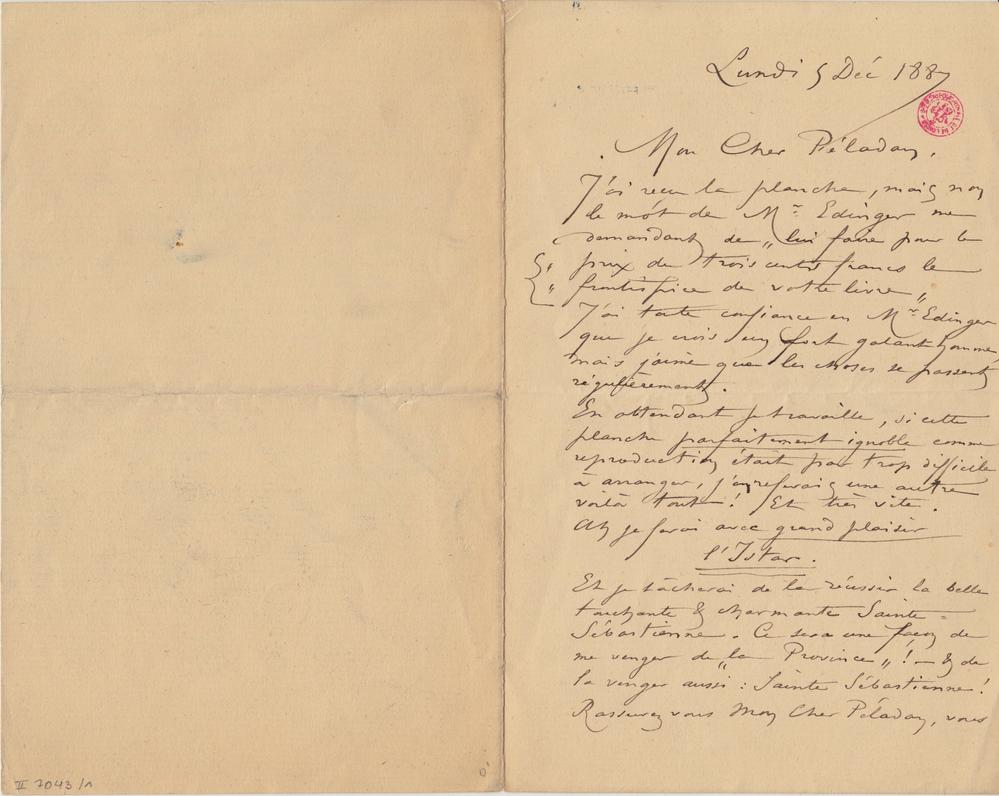 Lundi 5 Déc 1887
Mon Cher Péladan,
J'ai reçu la planche, mais non
le mot de Mr Edinger me
demandant de „ lui faire pour le
prix de trois cents francs le
frontispice de votre livre „
J'ai toute confiance en Mr Edinger
que je crois un fort galant homme
mais j'aime que les choses se passent
régulièrement.
En attendant je travaille, si cette
planche parfaitement ignoble comme
reproduction était par trop difficile
à arranger, j'en referais une autre
voilà tout! Et très vite.
Ah je ferai avec grand plaisir
l'Istar.
Et je tâcherai de la réussir la belle
touchante & charmante Sainte-
Sébastienne. Ce sera une façon de
me venger de „ la Province „ ! – & de
la venger aussi : Sainte Sébastienne !
Rassurez vous Mon Cher Péladan, vous
II 7043/1